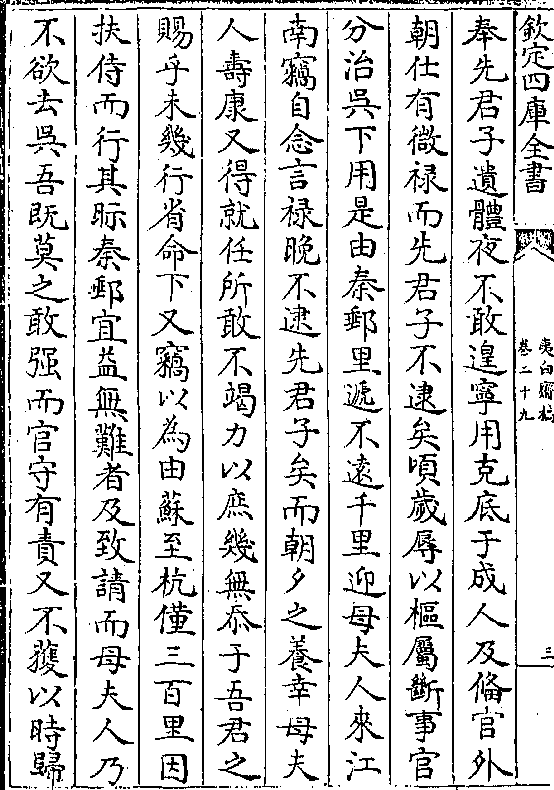 欽定四庫全書
夷白齋稿
卷二十九
三
奉先君子遺體夜不敢遑寧用克底于成人及備官外
朝仕有微禄而先君子不逮矣頃歲辱以樞屬斷事官
分治吳下用是由秦郵里遞不遠千里迎母夫人來江
南竊自念言禄晚不逮先君子矣而朝夕之養幸母夫
人壽康又得就任所敢不竭力以庶幾無忝于吾君之
賜乎未幾行省命下又竊以為由蘇至杭僅三百里因
扶侍而行其眎秦郵宜益無難者及致請而母夫人乃
不欲去吳吾既莫之敢强而官守有責又不獲以時歸